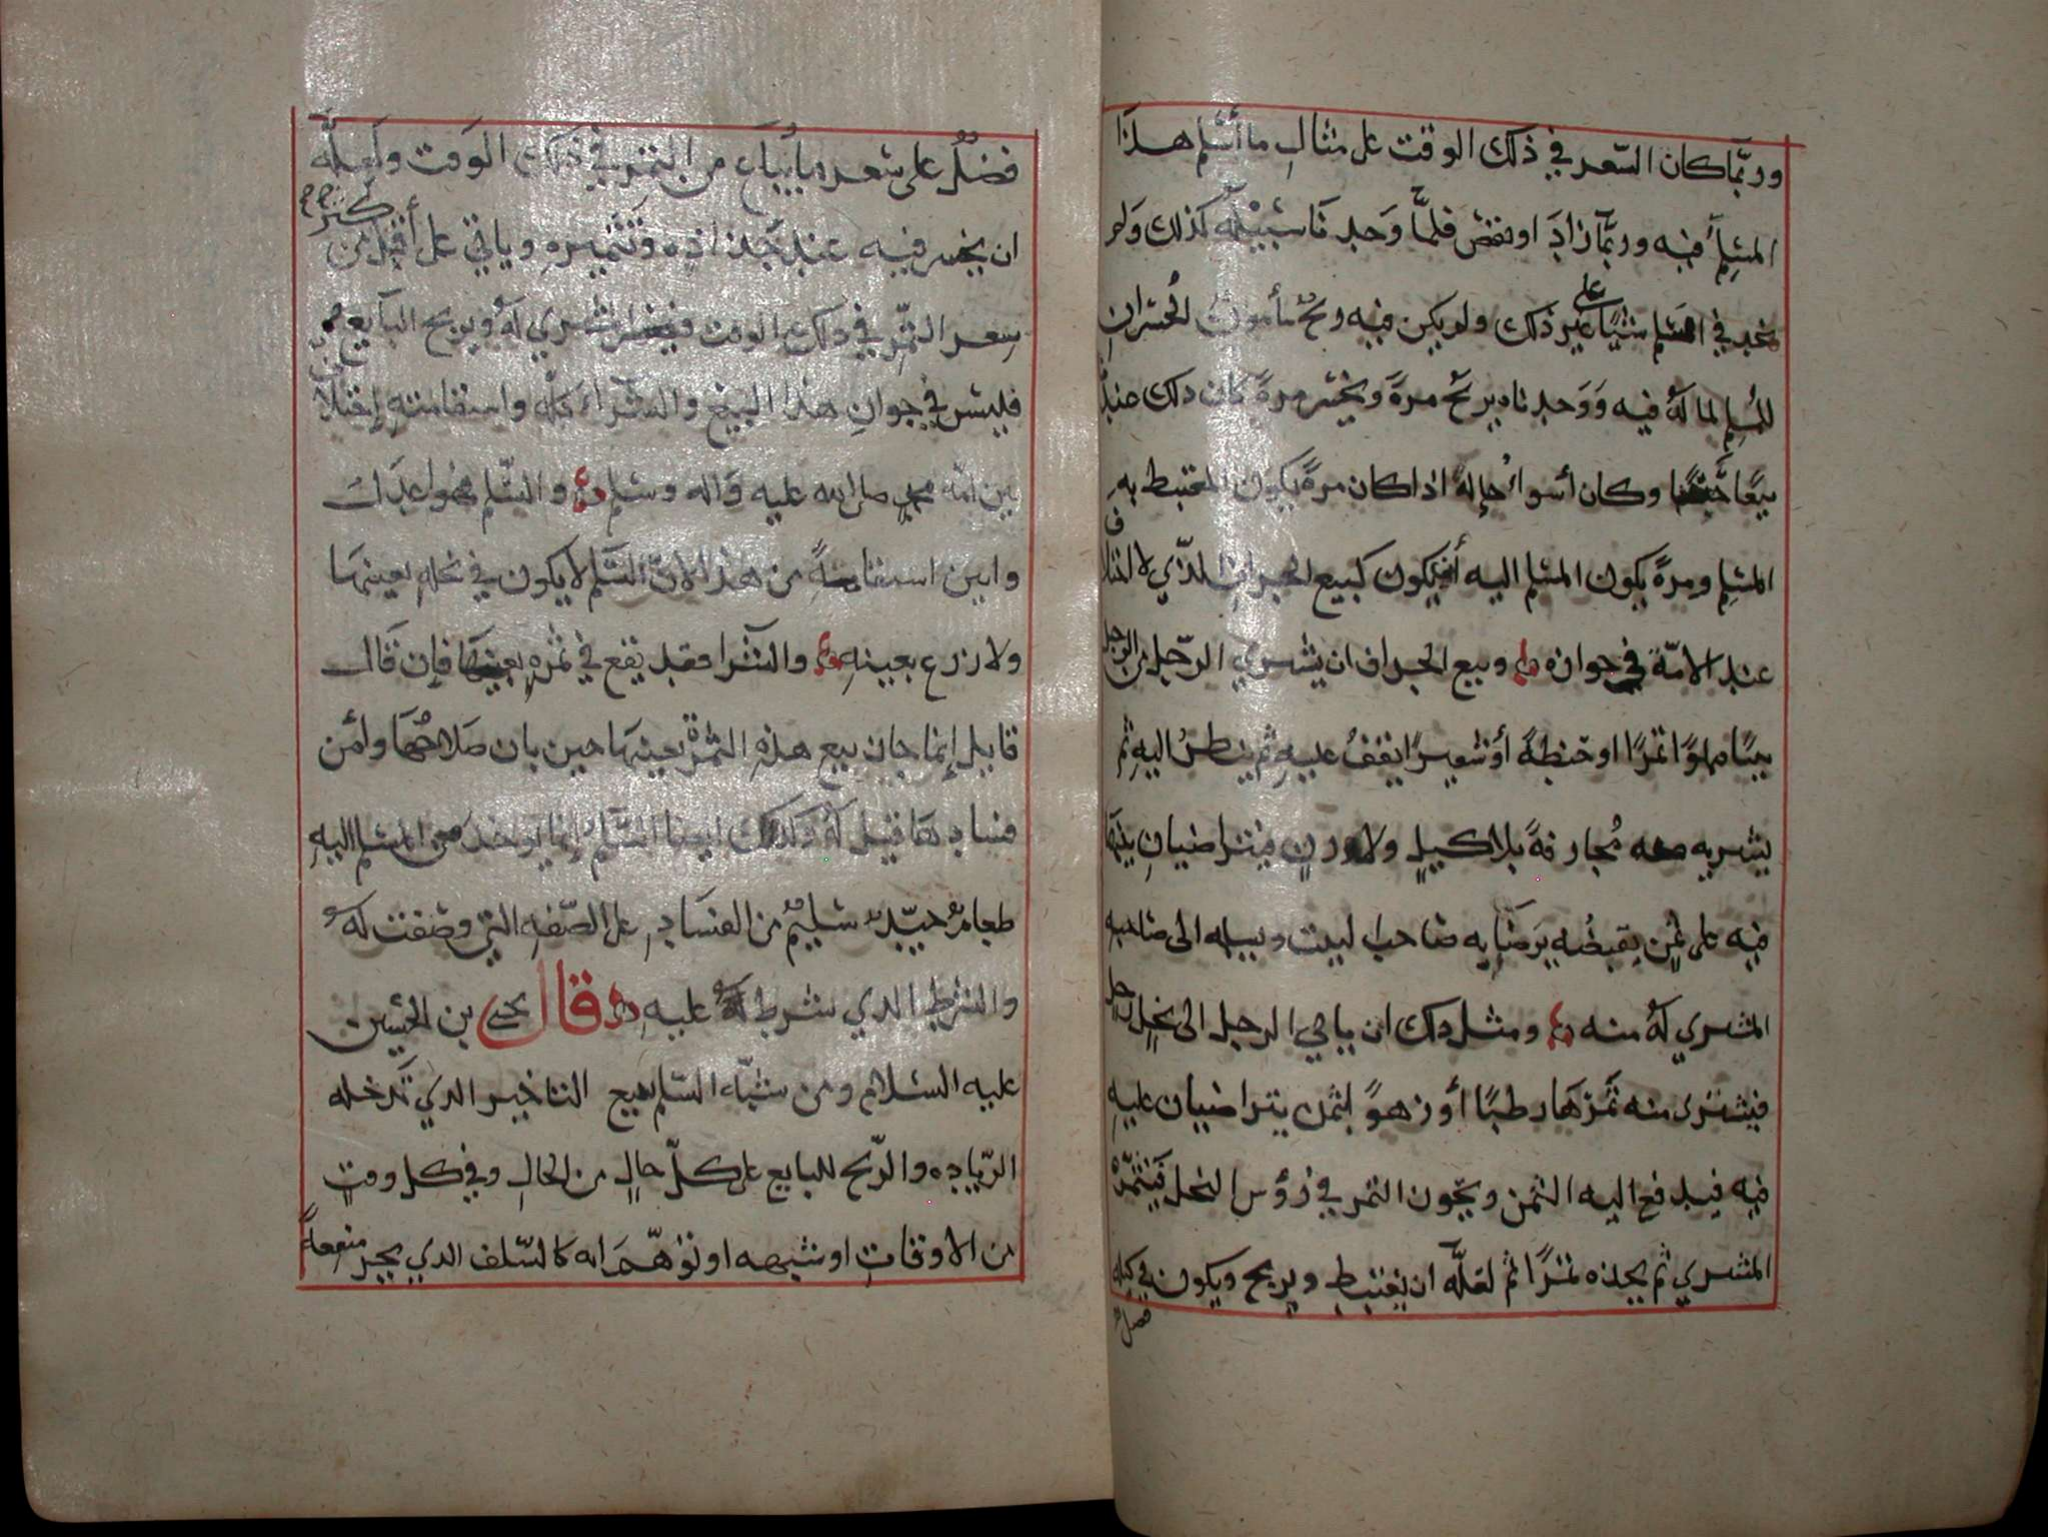 وربما كان السعر في ذلك الوقت على مثال ما أسلم هذا
المسلم فيه وربما زاد او نقص فلما وجدنا سبيله كذلك ولم
نجد في السلم شيئا على غير ذلك ولم يكن فيه وبح مأمون الخسران
للمسلم لما له فيه ووجدناه يربح مرة ويخسر مرة كان ذلك عندنا
بيعا وكان أسوأ حاله اذا كان مرة يكون المغتبط به
المسلم ومرة يكون المسلم اليه أن يكون كبيع الجزاف الذي لا اختلاف
عند الامة في جوازه وبيع الجزاف ان يشتري الرجل من الرجل
بيتا مملوا تمرا او حنطة أو شعيرا يقف عليه ثم ينظر اليه ثم
يشتريه منه مجازفة بلا كيل ولا وزن فيتراضيان بينهما
فيه على ثمن يقبضه يرضا به صاحب البيت ويسلمه الى صاحبه
المشتري له منه ومثل ذلك ان ياتي الرجل الى نخل الرجل
فيشتري منه تمرها رطبا أو زهوا بثمن يتراضيان عليه
فيه فيدفع اليه الثمن ويكون التمر في رؤس النخل فيتمره
المشتري ثم يجذه تمرا ثم لعله ان يغتبط ويربح ويكون في كيله
فضل
فضل على سعر ما يباع من التمر في ذلك الوقت ولعله
ان يخسر فيه عند جذاذه وتتميره وياتي على أقل من
سعر التمر في ذلك الوقت فيخسر المشتري له ويربح البايع
فليس في جواز هذا البيع والشراء كله واستقامته إختلاف
بين امة محمد صلى الله عليه وآله وسلم والسلم فهو أعدل
وابين استقامة من هذا لان السلم لا يكون في نخلة بعينها
ولا زرع بعينه والشرا فقد يقع في ثمرة بعينها فإن قال
قايل إنما جاز بيع هذه الثمرة بعينها حين بان صلاحها وأمن
فسادها قيل له وكذلك ايضا السلم إنما يوخذ من المسلم اليه
طعام جيد سليم من الفساد على الصفة التي وصفت له
والشرط الذي شرط له عليه قال يحيى بن الحسين
عليه السلام ومن شبه السلم ببيع التاخير الذي تدخله
الزيادة والربح للبايع على كل حال من الحال وفي كل وقت
من الاوقات او شبهه او توهم انه كالسلف الذي يجر منفعة